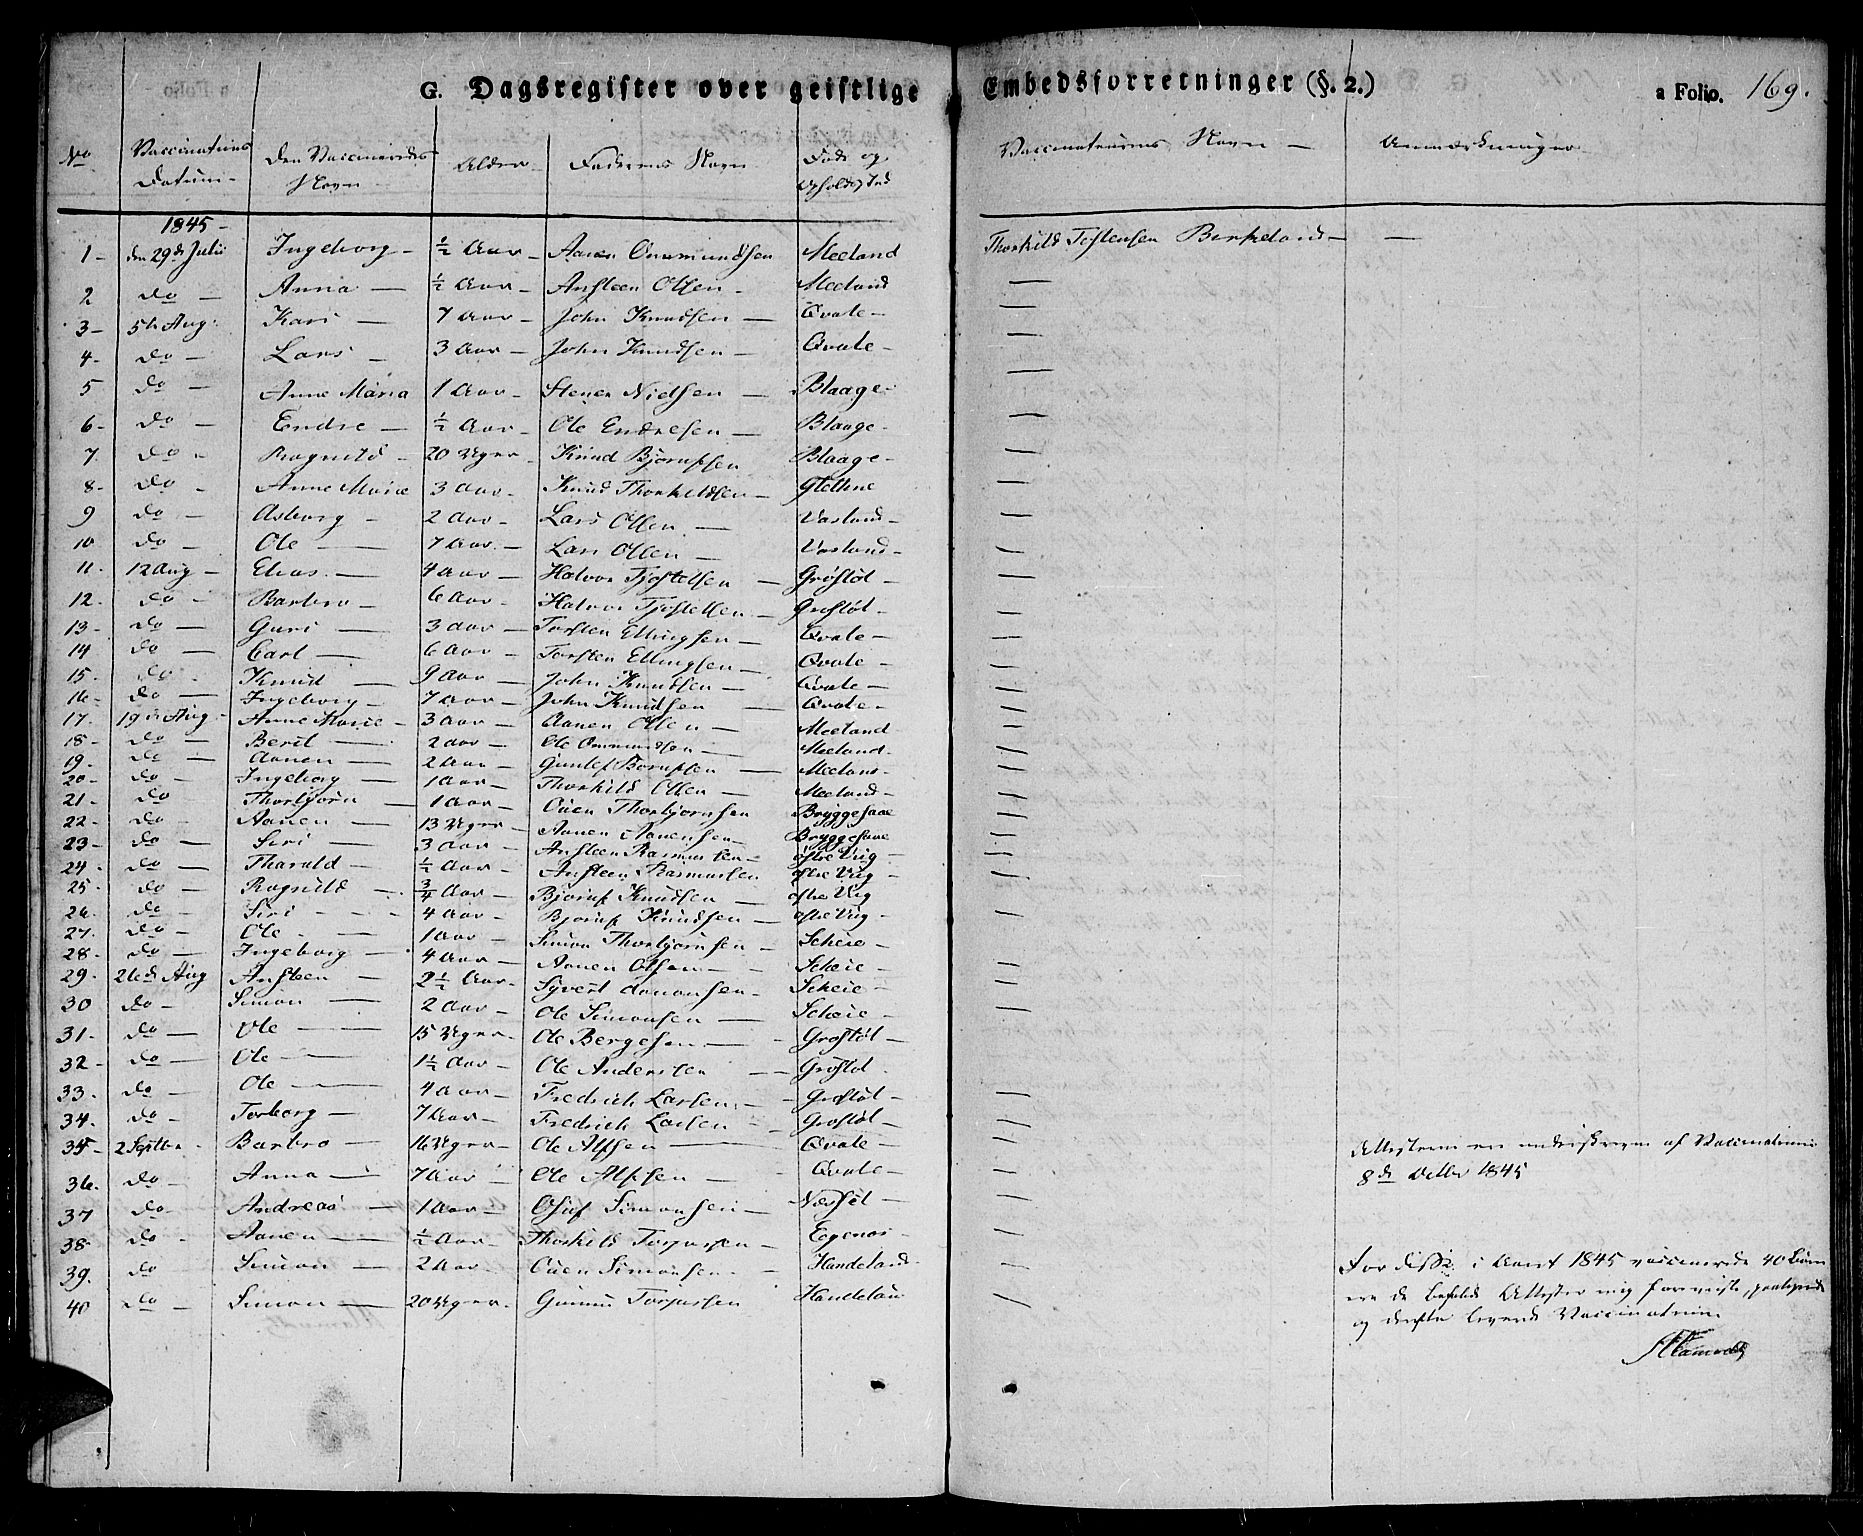 G. Dagsregister over geistlige Embedsforretninger (§. 2.) a Folio. 169.
No Vaccinations Datum Den Vaccineredes Navn Alder Faderens Navn Føde og Opholdssted Vaccinateurens Navn Anmærkninger
1845
1 den 29de Julii Ingeborg ½ Aar Aanen Ommundsen Meeland Thorkild Tostensen Birkeland
2 do Anna ½ Aar Ansteen Olsen Meeland
3 5te Aug: Kari 7 Aar John Knudsen Qvale
4 do Lars 3 Aar John Knudsen Qvale
5 do Anne Maria 1 Aar Stener Nielsen Blaage
6 do Endre ½ Aar Ole Endresen Blaage
7 do Ragnild 20 Uger Knud Bjorufsen Blaage
8 do Anne Marie 3 Aar Knud Thorkildsen
9 do Asborg 2 Aar Lars Olsen Vasland
10 do Ole 7 Aar Lars Olsen Vasland
11 12 Aug Elias 4 Aar Halvor Tjostelsen Grostøl
12 do Barbro 6 Aar Halvor Tjostelsen Grostøl
13 do Guri 3 Aar Torsten Ellingsen Qvale
14 do Carl 6 Aar Torsten Ellingsen Qvale
15 do Knud 9 Aar John Knudsen Qvale
16 do Ingeborg 7 Aar John Knudsen Qvale
17 19de Aug Anne Marie 3 Aar Aanen Olsen Meeland
18 do Berit 2 Aar Ole Ommundsen Meeland
19 do Aanen 2 Aar Gunlef Meeland
20 do Ingeborg 1 Aar Thorkild Olsen Meeland
21 do Thorbjørn 1 Aar Ouen Thorbjornsen Bryggesaae
22 do Aanen 13 Uger Aanen Aanensen Bryggesaae
23 do Siri 3 Aar Ansteen Rasmussen østre Viig
24 do Tharald ½ Aar Ansteen Rasmussen østre Viig
25 do Ragnild ¾ Aar Bjoruf Knudsen østre Viig
26 do Siri 4 Aar Bjoruf Knudsen østre Viig
27 do Ole 1 Aar Simon Thorbjornsen Scheie
28 do Ingeborg 4 Aar Aanen Olsen Scheie
29 26de Aug Ansteen 2½ Aar Syvert Aanonsen Scheie
30 do Simon 2 Aar Ole Simonsen Scheie
31 do Ole 15 Uger Ole Bergesen Grostøl
32 do Ole 1½ Aar Ole Andersen Grostøl
33 do Ole 4 Aar Fredrich Larsen Grostøl
34 do Torborg 7 Aar Fredrich Larsen Grostøl
35 2 Septbr Barbro 16 Uger Ole Alfsen Qvale Attesterne ere underskrevne af Vaccinateuren
36 do Anna 7 Aar Ole Alfsen Qvale 8de Octbr 1845
37 do Andreas 1 Aar Osuf Simonsen Næstøl
38 do Aanen ½ Aar Thorkild Torjussen Eegenæs
39 do Simon 2 Aar Ouen Simonsen Handeland For disse i Aaret 1845 vaccinerede 40 Børn
40 do Simon 20 Uger Gunnu Torjussen Handeland ere de befalede Attester mig foreviiste,
og derefter Vaccinateuren